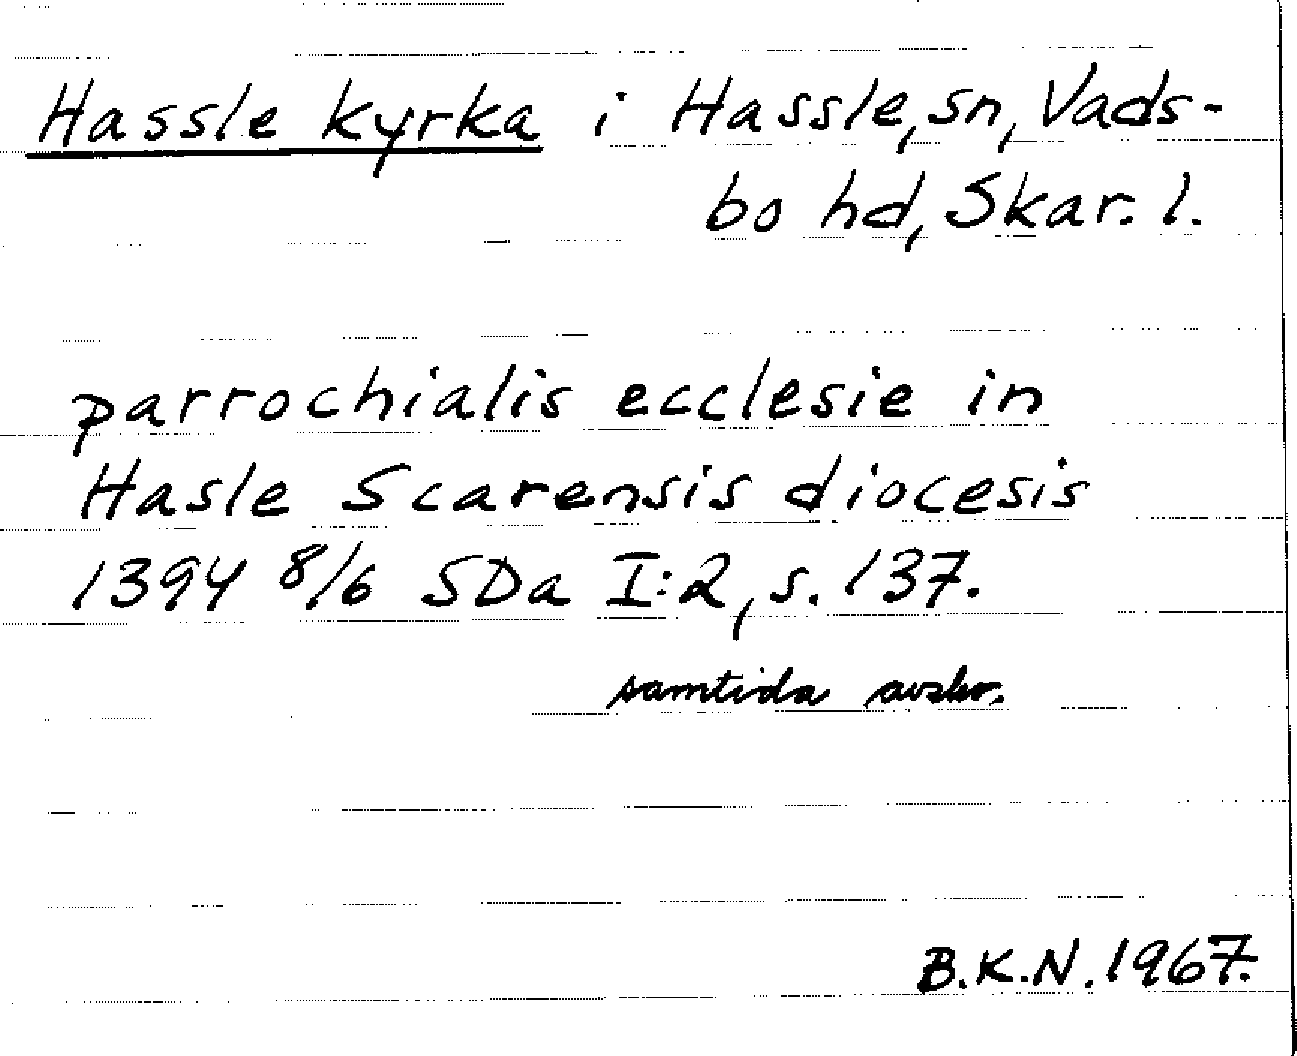 Hassle kyrka i Hassle, sn, Vads-
bo hd, Skar. l.
parrochialis ecclesie in
Hasle Scarensis diocesis
1394 8/6 SDa I:2, s. 137.
samtida avskr.
B.K.N. 1967.